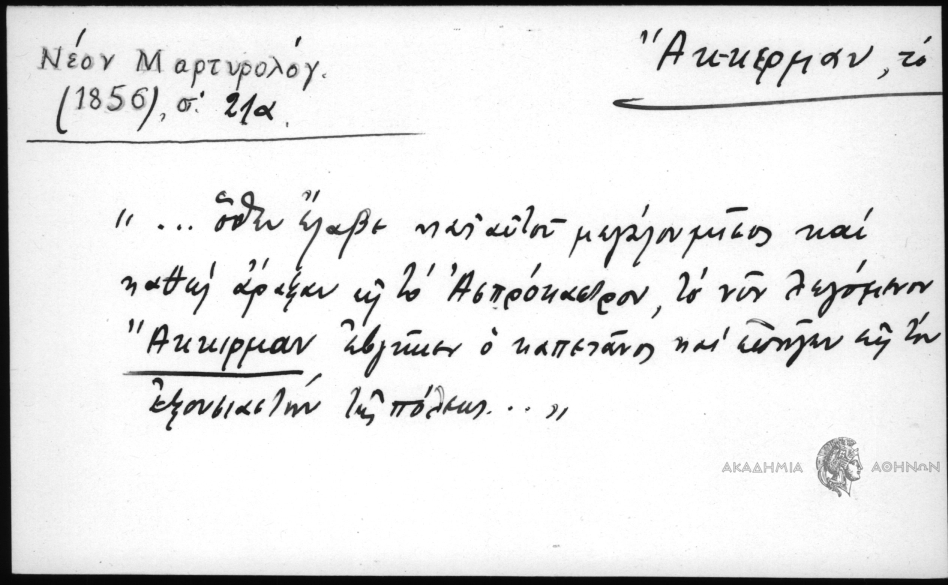 Νέον Μαρτυρολόγ.
(1856), σ. 21α.
Ἄκκερμαν, τό
“... ὅθεν ἔλαβε κατ' αὐτοῦ μεγάλον μῖσος καὶ
καθὼς ἄραξαν εἰς τὸ Ἀσπρόκαστρον, τὸ νῦν λεγόμενον
Ἄκκιρμαν ἐβγῆκεν ὁ καπετάνος καὶ εἰς τὸν
ἐξουσιαστὴν τῆς πόλεως...„
ΑΚΑΔΗΜΙΑ ΑΘΗΝΩΝ